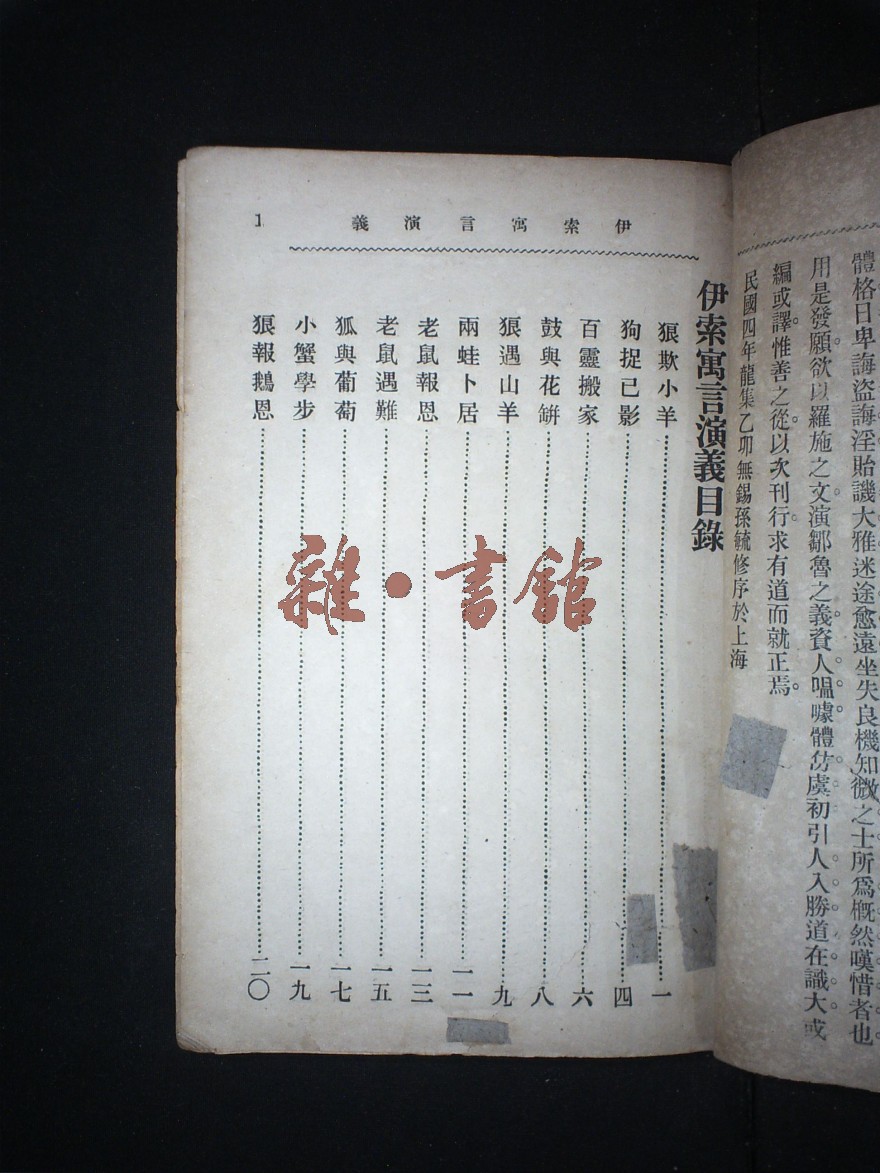 體格日卑誨盜誨淫貽譏大雅迷途愈遠坐失良機知微之士所爲概然嘆惜者也
用是發願欲以羅施之文演鄒魯之義資人嗢噱體仿虞初引人入勝道在識大或
編或譯惟善之從以次刊行求有道而就正焉
民國四年龍集乙卯無錫孫毓修序於上海
伊索寓言演義
1
伊索寓言演義目錄
狼欺小羊 一
狗捉己影 四
百靈搬家 六
鼓與花缾 八
狼遇山羊 九
兩蛙卜居 一一
老鼠報恩 一三
老鼠遇難 一五
狐與葡萄 一七
小蟹學步 一九
狼報鵝恩 二〇
雜·書館